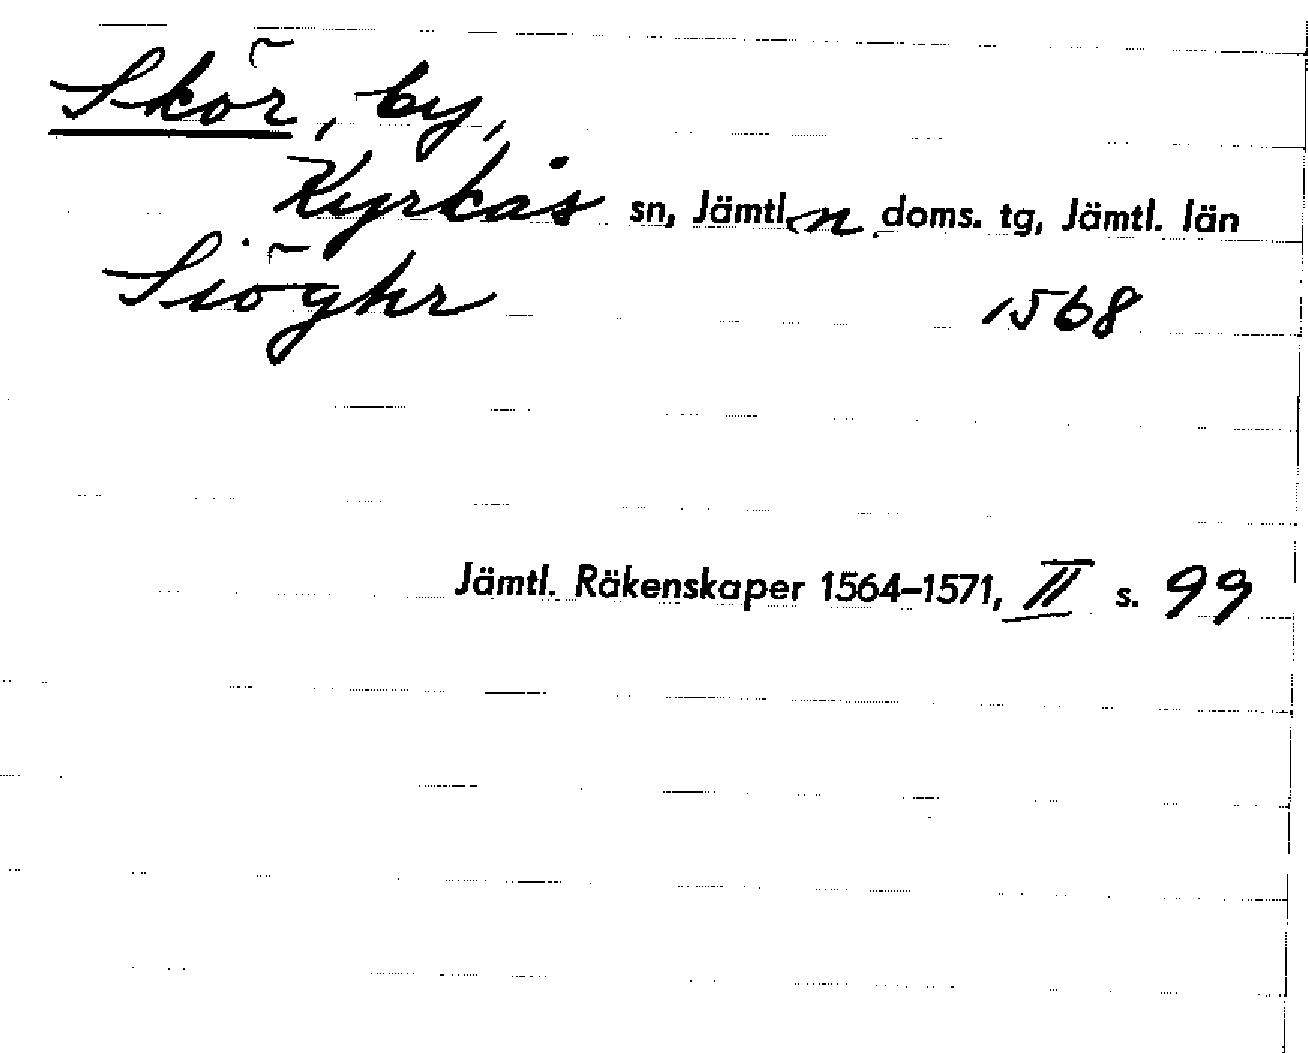 Skör, by,
Kyrkås sn, Jämtl. n. doms. tg, Jämtl. län
Siöghr 1568
Jämtl. Räkenskaper 1564–1571, II s. 99